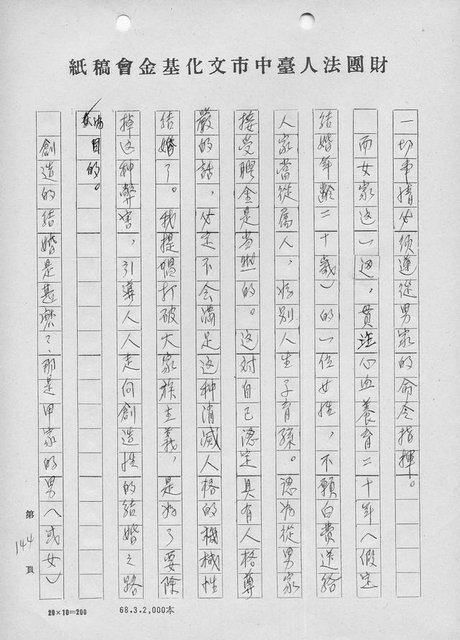 財團法人臺中市文化基金會稿紙
一切事情必須遵從男家的命令指揮。
而女家这一边，貫注心血養育二十年（假定
結婚年齡二十歲）的一位女性，不願白費送給
人家當從属人，為別人生子育孫。認為從男家
接受聘金是当然的。这对自己認定具有人格尊
嚴的話，必定不会满足这种消滅人格的機械性
結婚了。我提唱打破大家族主義，是為了要除
掉这种弊害，引導人人走向創造性的結婚之路
為目的。
創造的結婚是甚麽？那是男家的男（或女）
第144頁
20×10=200
68.3.2,000本